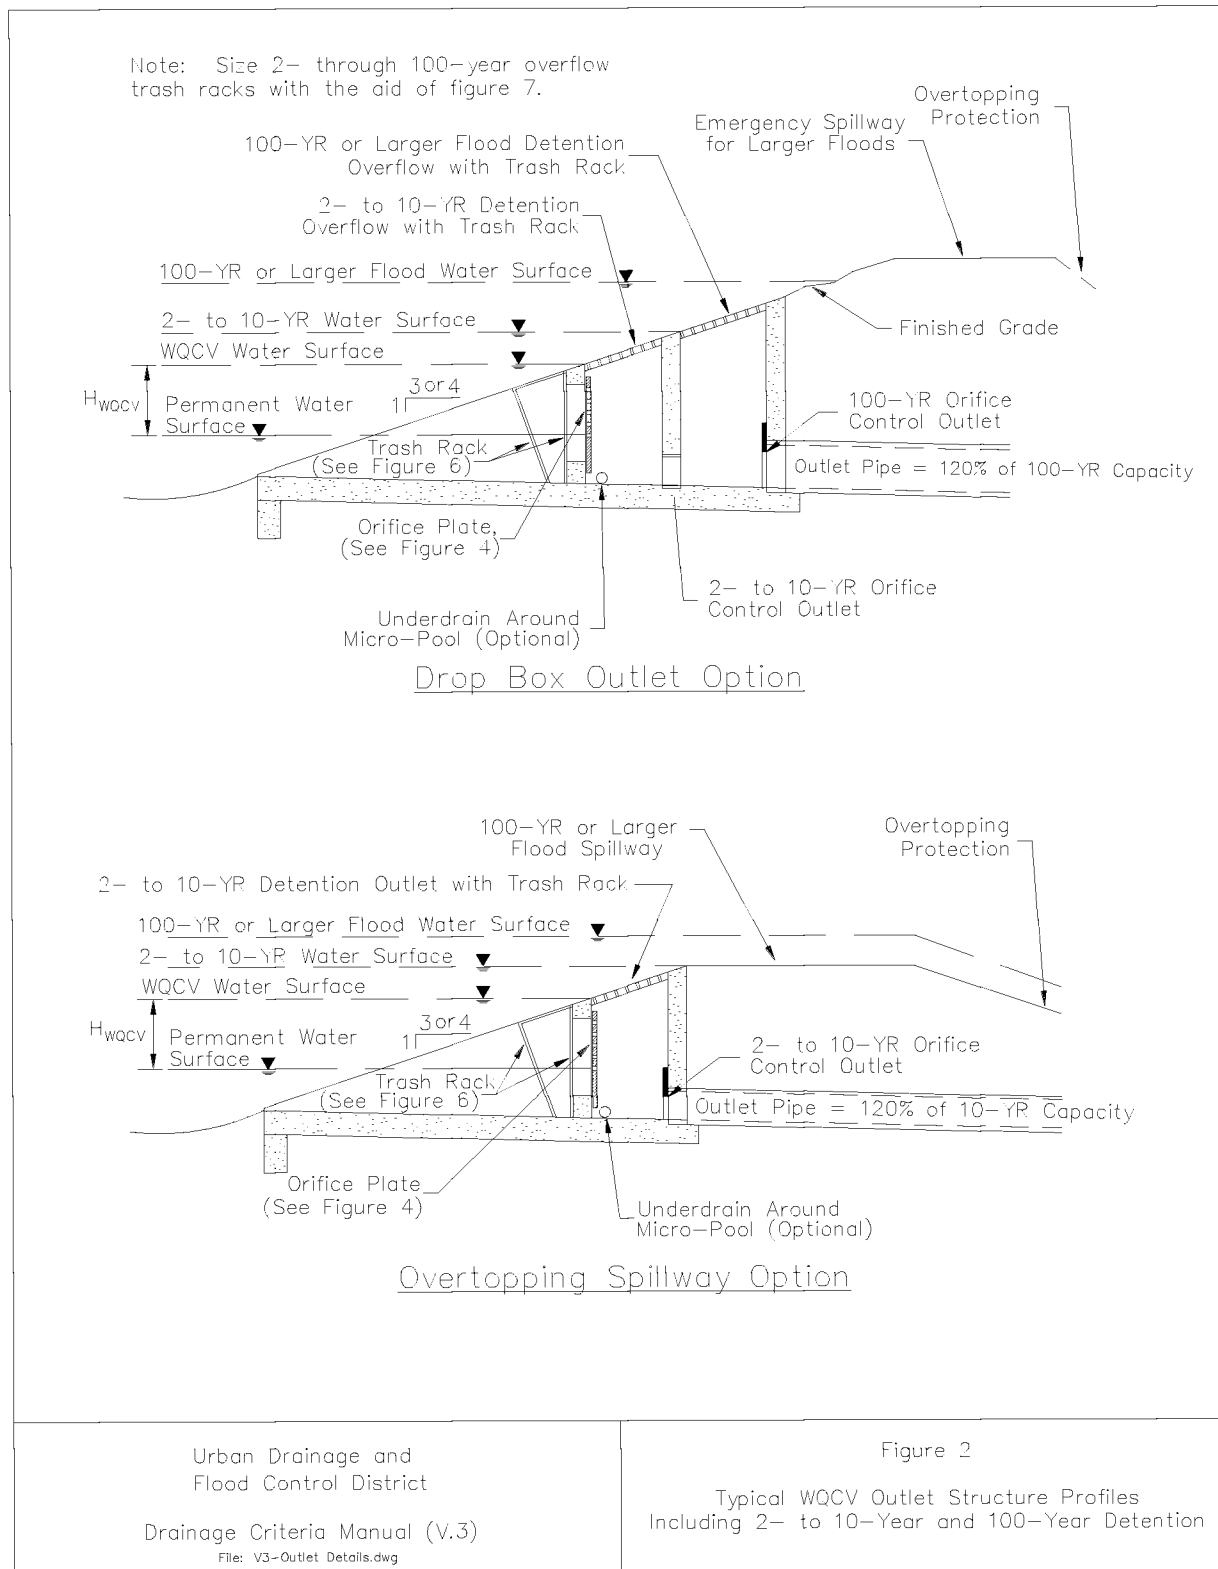 Note: Size 2- through 100-year overflow
trash racks with the aid of figure 7.
Overtopping
Protection
Emergency Spillway
for Larger Floods
100-YR or Larger Flood Detention
Overflow with Trash Rack
2- to 10-YR Detention
Overflow with Trash Rack
100-YR or Larger Flood Water Surface
2- to 10-YR Water Surface
Finished Grade
WQCV Water Surface
3 or 4
1
HWQCV
Permanent Water
Surface
100-YR Orifice
Control Outlet
Trash Rack
(See Figure 6)
Outlet Pipe = 120% of 100-YR Capacity
Orifice Plate,
(See Figure 4)
2- to 10-YR Orifice
Control Outlet
Underdrain Around
Micro-Pool (Optional)
Drop Box Outlet Option
100-YR or Larger
Flood Spillway
Overtopping
Protection
2- to 10-YR Detention Outlet with Trash Rack
100-YR or Larger Flood Water Surface
2- to 10-YR Water Surface
WQCV Water Surface
3 or 4
1
HWQCV
Permanent Water
Surface
2- to 10-YR Orifice
Control Outlet
Trash Rack
(See Figure 6)
Outlet Pipe = 120% of 10-YR Capacity
Orifice Plate
(See Figure 4)
Underdrain Around
Micro-Pool (Optional)
Overtopping Spillway Option
Urban Drainage and
Flood Control District
Drainage Criteria Manual (V.3)
File: V3-Outlet Details.dwg
Figure 2
Typical WQCV Outlet Structure Profiles
Including 2- to 10-Year and 100-Year Detention